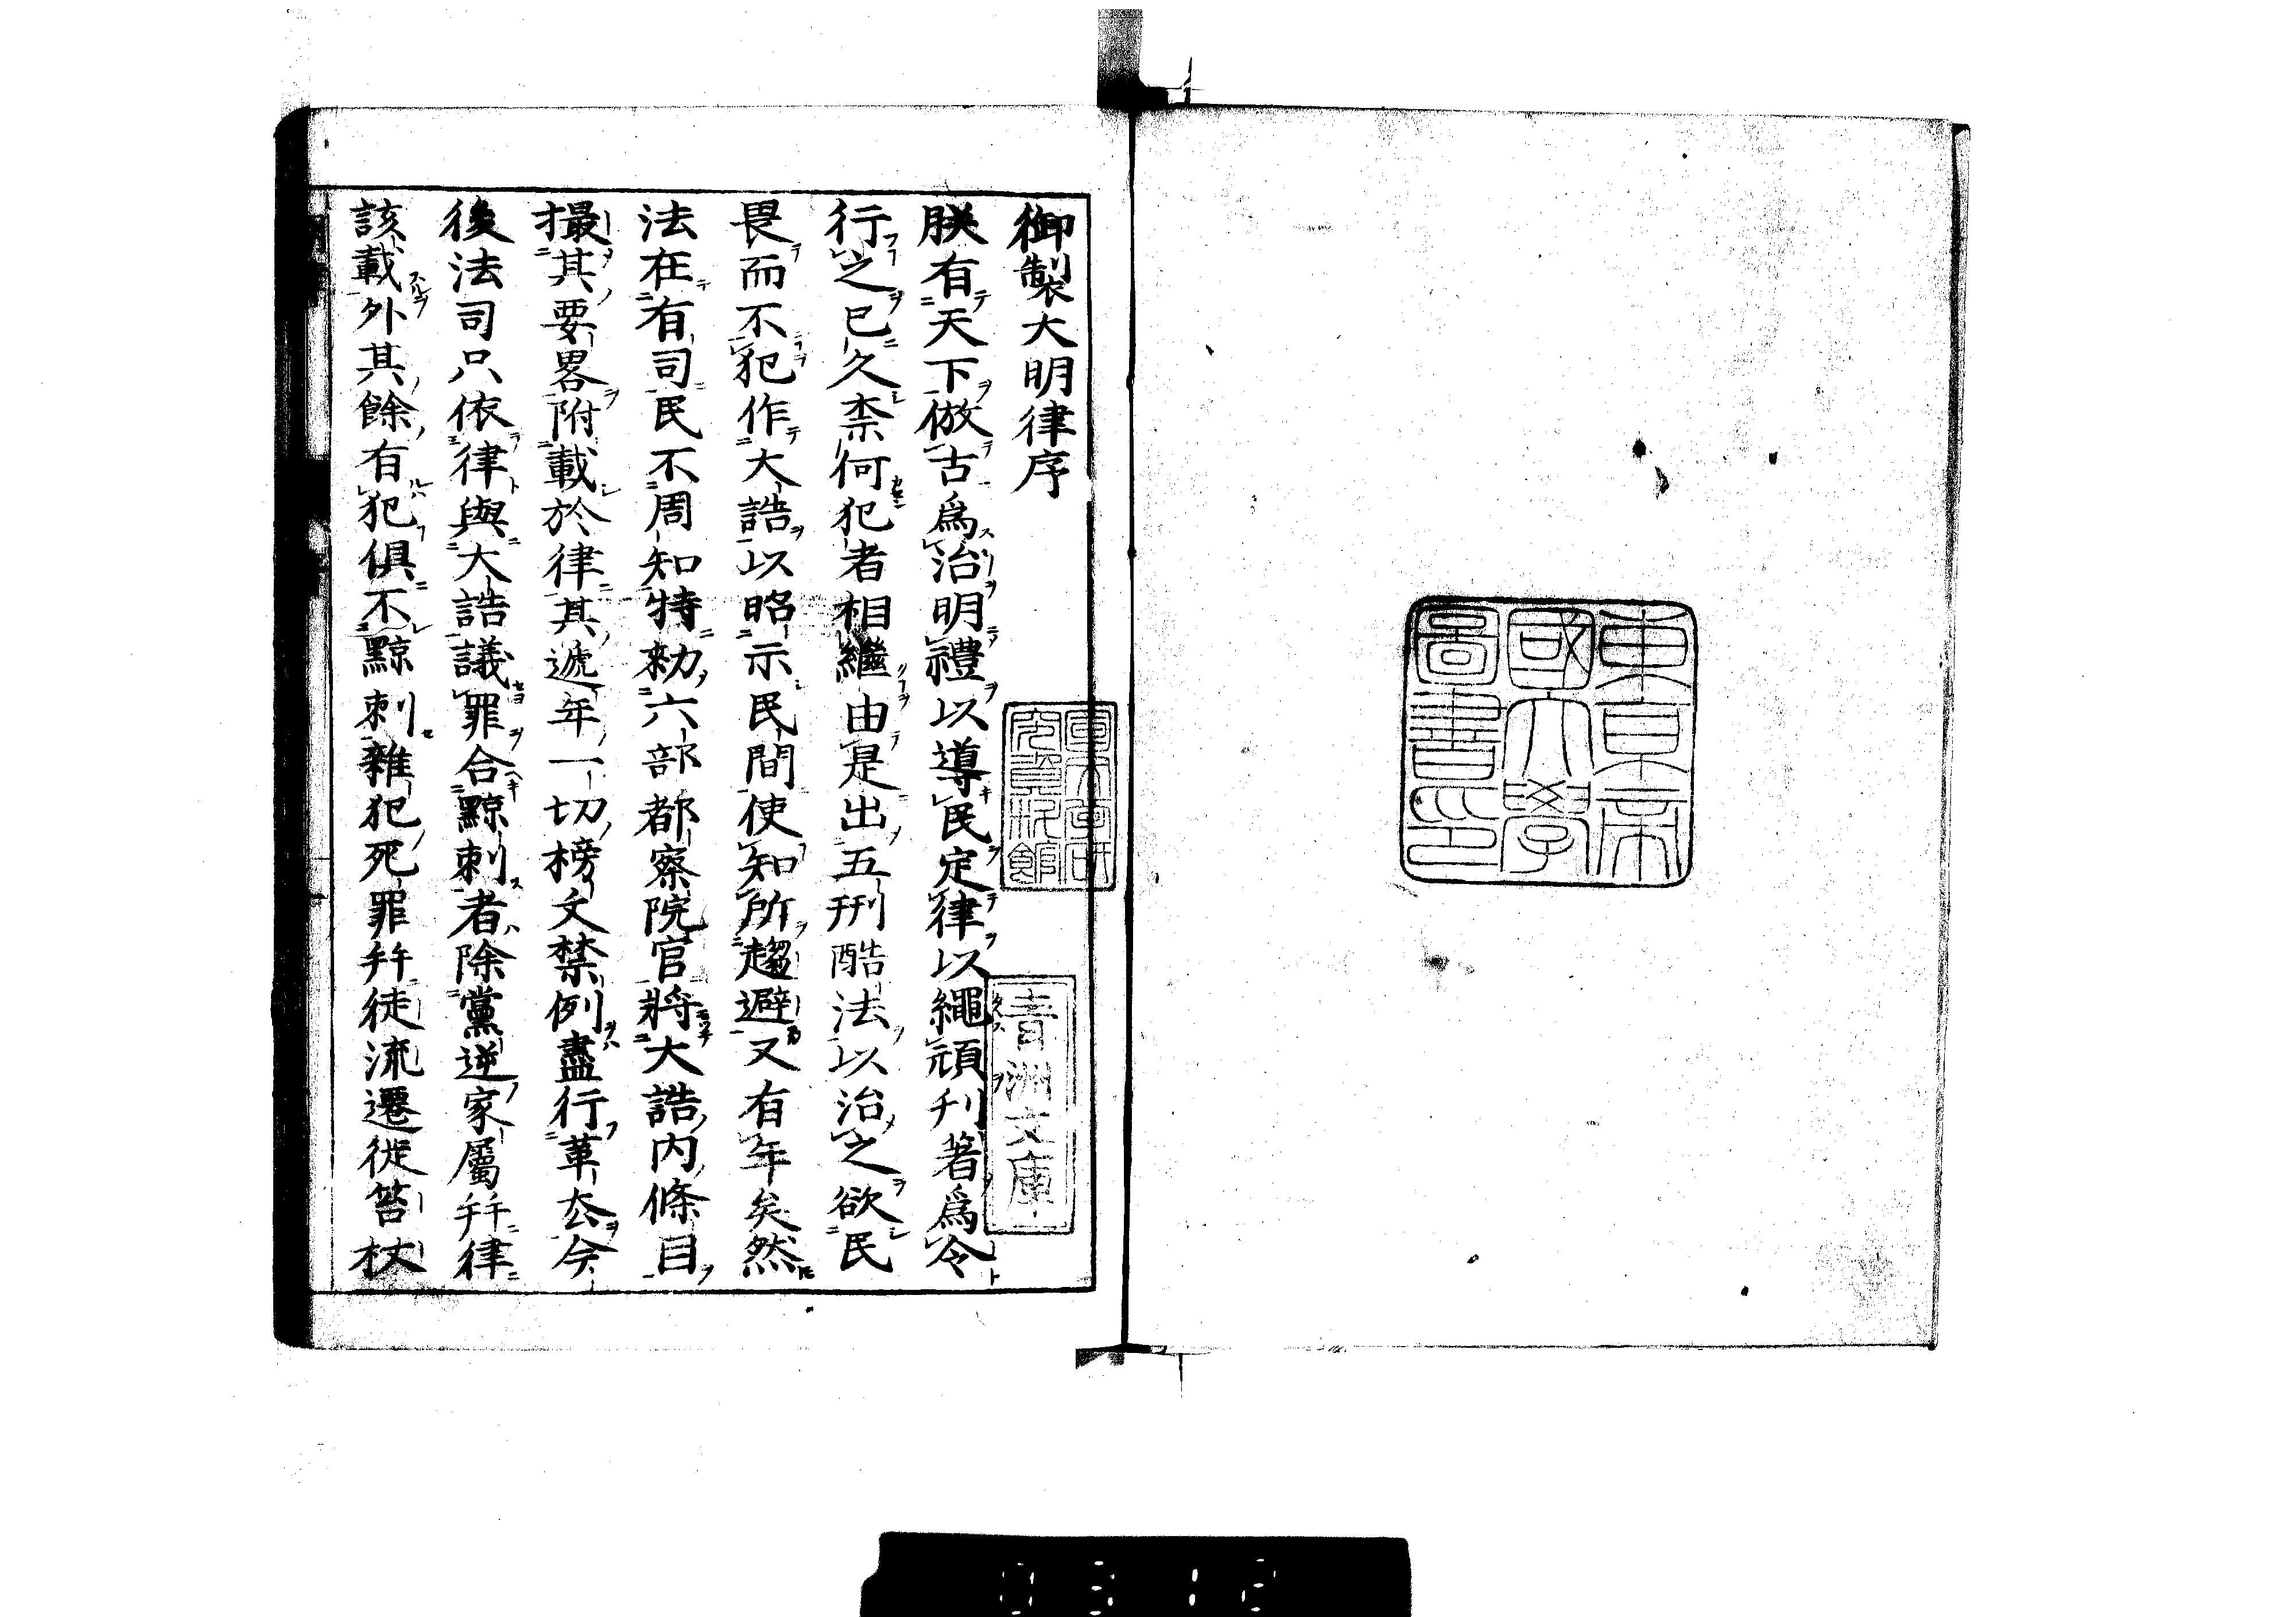 東京帝
國大學
圖書印
御製大明律序
朕有天下倣古爲治明禮以導民定律以繩頑刋著爲令
行之已久柰何犯者相繼由是出五刑酷法以治之欲民
畏而不犯作大誥以昭示民間使知所趨避又有年矣然
法在有司民不周知特勑六部都察院官將大誥内條目
撮其要畧附載於律其遞年一切榜文禁例盡行革去今
後法司只依律與大誥議罪合黥刺者除黨逆家屬幷律
該載外其餘有犯俱不黥刺雜犯死罪幷徒流遷徙笞杖
青洲文庫
0312